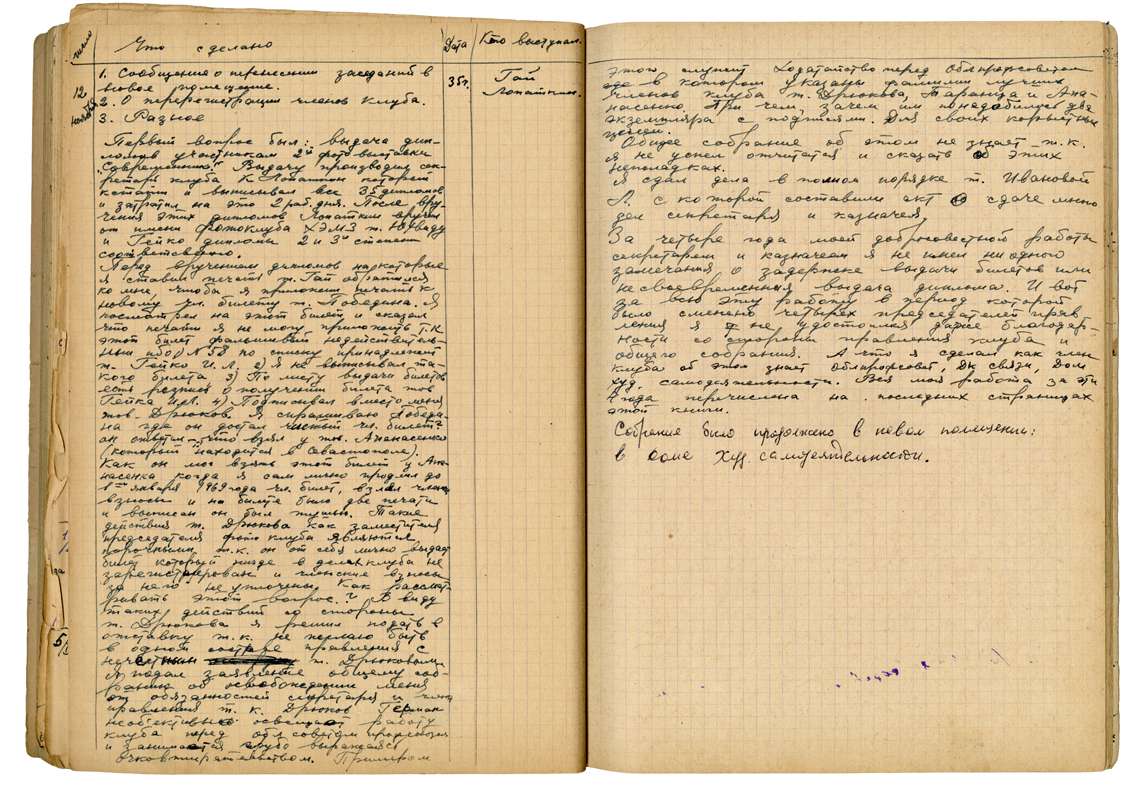 число
Что сделано
Дата
Кто выступал.
12
ноября
1. Сообщение о перенесении заседаний в
новое помещение.
2. О перерегистрации членов клуба.
3. Разное
35г.
Гай
Лопаткин.
Первый вопрос был: выдача дип-
ломов участникам 2й фотовыставки
"Современник". Выдачу производил сек-
ретарь клуба К. Лопаткин который
кстати выписывал все 35 дипломов
и затратил на это 2 раб. дня. После вру-
чения этих дипломов Лопаткин вручил
от имени фотоклуба ХЭМЗ т.
и Гейко дипломы 2 и 3й степени
соответственно.
Перед вручением дипломов на которые
я ставил печать т. Гай обратился
ко мне, чтобы я приложил печать к
новому чл. билету т. Победина. Я
посмотрел на этот билет и сказал
что печати я не могу приложить т.к.
этот билет фальшивый недействитель-
ный ибо 1) № 58 по списку принадлежит
т. Гейко И.Л. 2) Я не выписывал та-
кого билета 3) По листу выдачи билетов
есть роспись о получении билета тов
Гейка И.Л. 4) Подписывал вместо меня
тов. Дрюков. Я спрашиваю Победи-
на где он достал чистый чл. билет?
он ответил что взял у тов. Апанасенко
(который находится в Севастополе).
Как он мог взять этот билет у Апа-
насенка когда я сам лично продлил до
1го января 1969 года чл. билет, взял член
взносы и на билете было две печати
и выписан он был тушью. Такие
действия т. Дрюкова как заместителя
председателя фото клуба являются
порочными, т.к. он от себя лично выдает
билет который нигде в делах клуба не
зарегистрирован и членские взносы
за него не уплочены. Как рассмат-
ривать этот вопрос? В виду
таких действий со стороны
т. Дрюкова я решил подать в
отставку т.к. не желаю быть
в одном составе правления с
нечестным т. Дрюковым
Я подал заявление общему соб-
ранию об освобождении меня
от обязанностей секретаря и члена
правления т.к. Дрюков Герман
необъективно освещает работу
клуба перед обл советом профсоюзов
и занимается грубо выражаясь
очковтирательством. Примером
этого служит ходатайство перед Облпрофсоветом
где в котором указаны фамилии лучших
членов клуба т. Дрюкова, Таранца и Апа-
насенко. При чем зачем им понадобилось два
экземпляра с подписями. Для своих корыстных
целей.
Общее собрание об этом не знает т.к.
я не успел отчитатся и сказать об этих
неполадках.
Я сдал дела в полном порядке т. Ивановой
Л. с которой составили акт о сдаче мною
дел секретаря и казначея,
За четыре года моей добросовестной работы
секретарем и казначеем я не имел ни одного
замечания о задержке выдачи билетов или
несвоевременная выдача диплома. И вот
за всю эту работу в период которой
было сменено четырех председателей прав
ления я не удостоился даже благодар-
ности со стороны правления клуба и
общего собрания. А что я сделал как член
клуба об этом знает облпрофсовет, Дк связи, Дом
худ. самодеятельности. Вся моя работа за эти
4 года перечислена на последних страницах
этой книги.
Собрание было продолжено в новом помещении:
в доме худ. самодеятельности.